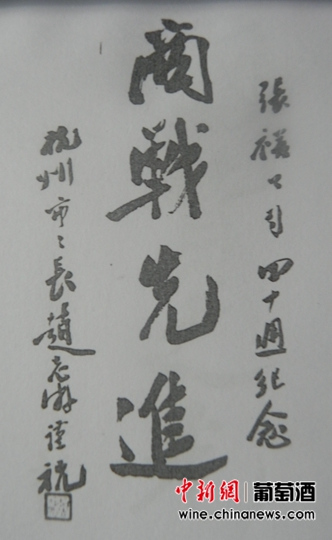 張裕公司四十週紀念
商戰先進
杭州市々長趙志游謹祝
中新網 葡萄酒
www.wine.chinanews.com